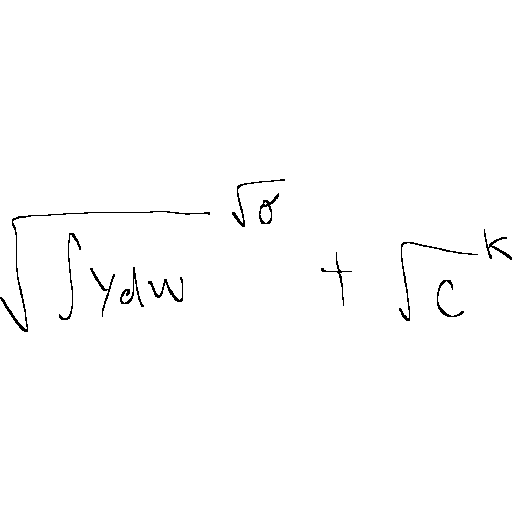 $\sqrt{\int y dw}^{\sqrt{\sigma}} + \sqrt{c}^{k}$